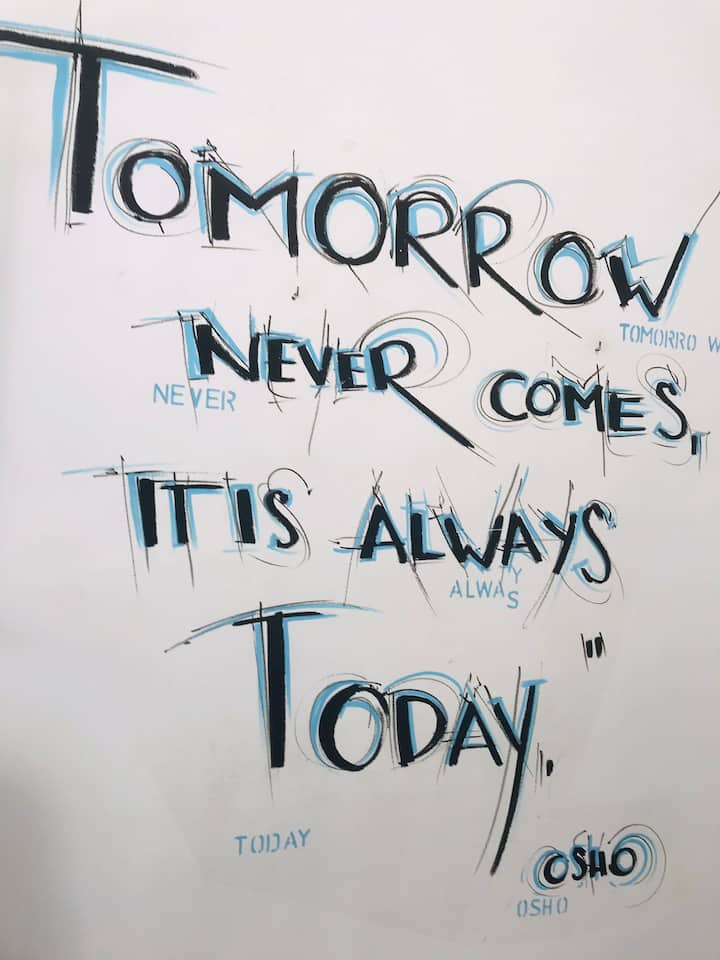 TOMORROW
TOMORRO W
NEVER COMES,
NEVER
IT IS ALWAYS
ALWAYS
TODAY."
TODAY
OSHO
OSHO